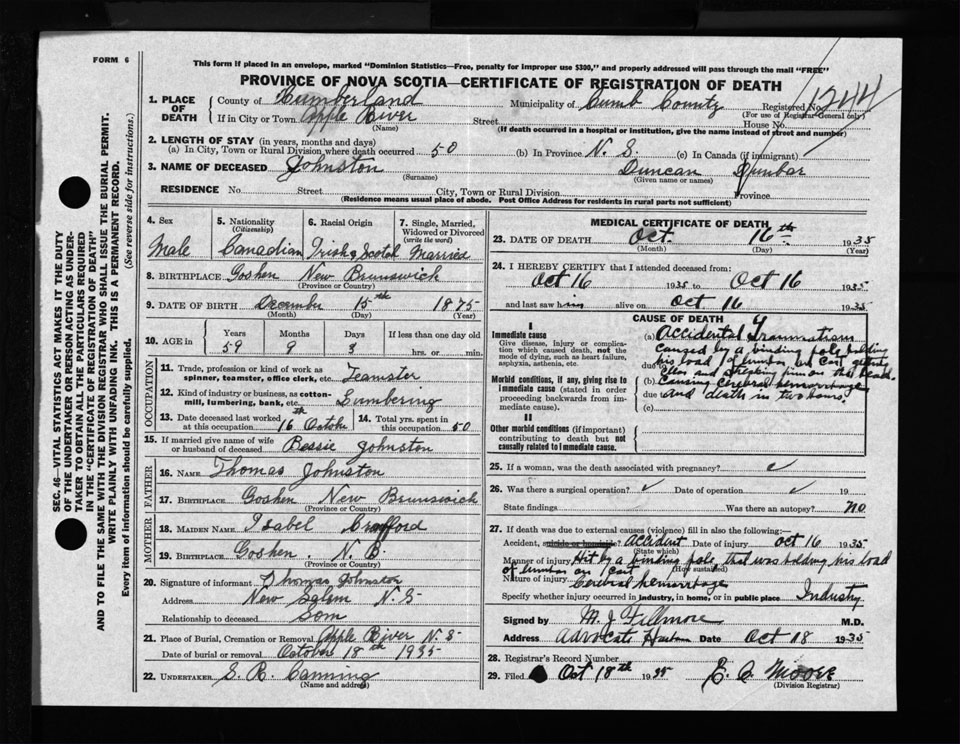 FORM 6
This form if placed in an envelope, marked "Dominion Statistics—Free, penalty for improper use $300," and properly addressed will pass through the mail "FREE"
PROVINCE OF NOVA SCOTIA—CERTIFICATE OF REGISTRATION OF DEATH
1. PLACE OF DEATH
County of Cumberland
Municipality of Cumb County
Registered No. 1244
(For use of Registrar-General only)
If in City or Town Apple River
(Name)
Street
House No.
(If death occurred in a hospital or institution, give the name instead of street and number)
2. LENGTH OF STAY (in years, months and days)
(a) In City, Town or Rural Division where death occurred 50 (b) In Province N. S. (c) In Canada (if immigrant)
3. NAME OF DECEASED Johnston Duncan Dunbar
(Surname) (Given name or names)
RESIDENCE No. Street City, Town or Rural Division Province
(Residence means usual place of abode. Post Office Address for residents in rural parts not sufficient)
SEC. 46—VITAL STATISTICS ACT MAKES IT THE DUTY
OF THE UNDERTAKER OR PERSON ACTING AS UNDER-
TAKER TO OBTAIN ALL THE PARTICULARS REQUIRED
IN THE "CERTIFICATE OF REGISTRATION OF DEATH"
AND TO FILE THE SAME WITH THE DIVISION REGISTRAR WHO SHALL ISSUE THE BURIAL PERMIT.
WRITE PLAINLY WITH UNFADING INK. THIS IS A PERMANENT RECORD.
Every item of information should be carefully supplied. (See reverse side for instructions.)
4. Sex
Male
5. Nationality
(Citizenship)
Canadian
6. Racial Origin
Irish & Scotch
7. Single, Married,
Widowed or Divorced
(write the word)
Married
8. BIRTHPLACE Goshen New Brunswick
(Province or Country)
9. DATE OF BIRTH December 15th 1875
(Month) (Day) (Year)
10. AGE in
Years Months Days If less than one day old
59 9 3 hrs. or min.
OCCUPATION
11. Trade, profession or kind of work as
spinner, teamster, office clerk, etc. Teamster
12. Kind of industry or business, as cotton-
mill, lumbering, bank, etc. Lumbering
13. Date deceased last worked
at this occupation 16th Octobe
14. Total yrs. spent in
this occupation 50
15. If married give name of wife
or husband of deceased Bessie Johnston
FATHER
16. NAME Thomas Johnston
17. BIRTHPLACE Goshen New Brunswick
(Province or Country)
MOTHER
18. MAIDEN NAME Isabel
19. BIRTHPLACE Goshen. N. B.
(Province or Country)
20. Signature of informant Thomas Johnston
Address New Salem N.S
Relationship to deceased Som
21. Place of Burial, Cremation or Removal Apple River N.S-
Date of burial or removal October 18th 1935
22. UNDERTAKER S. R. Canning
(Name and address)
MEDICAL CERTIFICATE OF DEATH
23. DATE OF DEATH Oct. 16th 1935
(Month) (Day) (Year)
24. I HEREBY CERTIFY that I attended deceased from:
Oct 16 1935 to Oct 16 1935
and last saw him alive on Oct 16 1935
CAUSE OF DEATH
I
Immediate cause
Give disease, injury or complica-
tion which caused death, not the
mode of dying, such as heart failure,
asphyxia, asthenia, etc.
Morbid conditions, if any, giving rise to
immediate cause (stated in order
proceeding backwards from im-
mediate cause).
II
Other morbid conditions (if important)
contributing to death but not
causally related to immediate cause.
(a) Accidental Traumatism
caused by a binding pole holding
due his load of lumber on cart
and striking him on the head
(b) causing cerebral hemorrhage
due and death in two hours.
(c)
25. If a woman, was the death associated with pregnancy?
26. Was there a surgical operation? Date of operation 19
State findings Was there an autopsy? no
27. If death was due to external causes (violence) fill in also the following:—
Accident, suicide or homicide? Accident Date of injury Oct 16 1935
(State which)
Manner of injury Hit by a binding pole that was holding his load
of lumber on cart (How sustained)
Nature of injury Cerebral hemorrhage
Specify whether injury occurred in industry, in home, or in public place Industry
Signed by M. J. Fillmore M.D.
Address Advocate Date Oct 18 1935
28. Registrar's Record Number
29. Filed Oct 18th 1935 E. A. Moore
(Division Registrar)